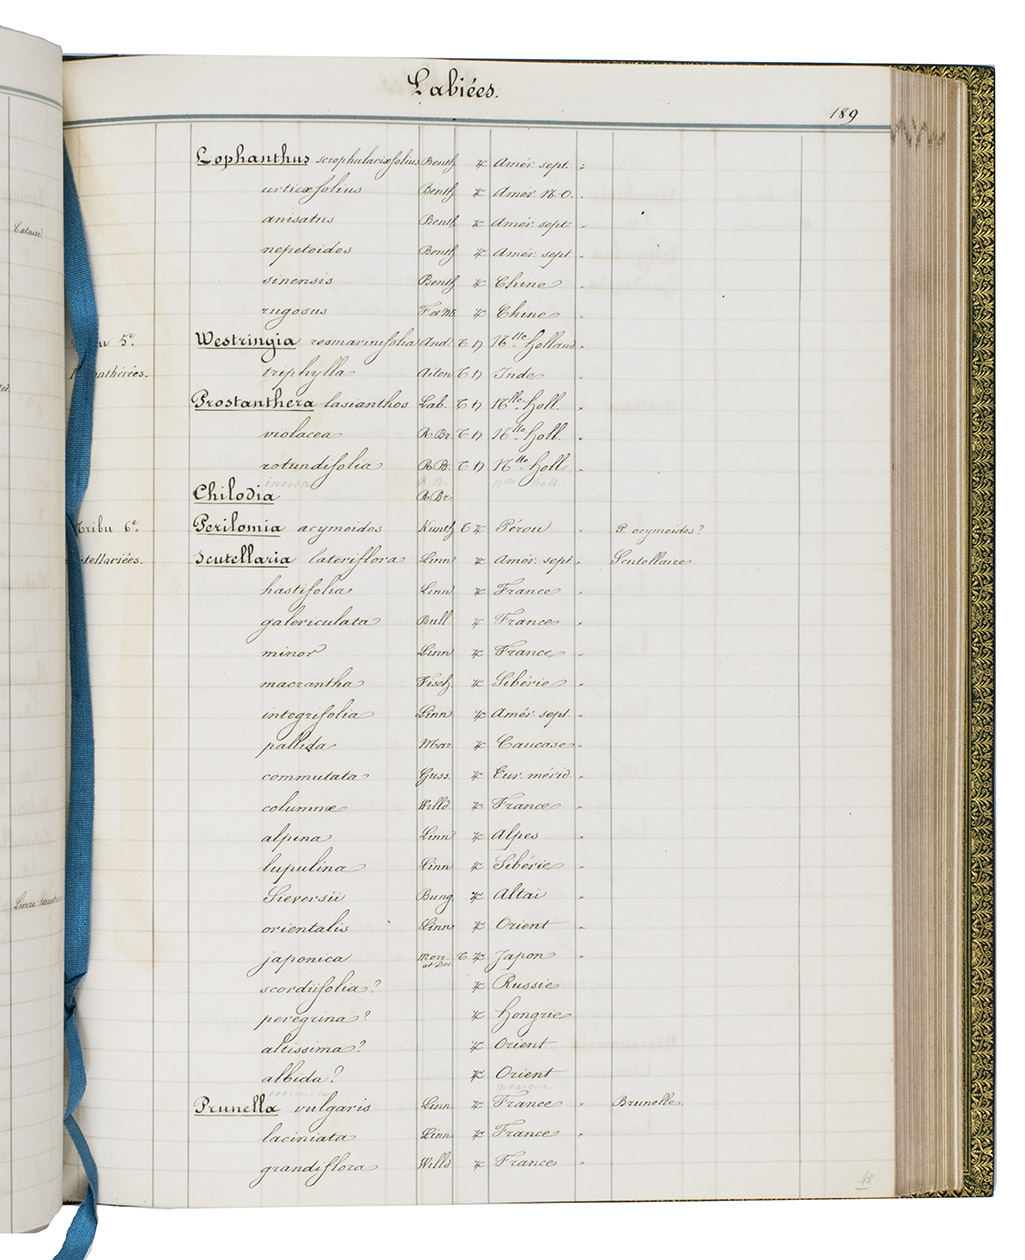 Labiées.
189
Lophanthus scrophulariæfolius Benth ♃ Amér. sept.
urticæfolius Benth ♃ Amér. N.O.
anisatus Benth ♃ Amér. sept.
nepetoides Benth ♃ Amér. sept.
sinensis Benth ♃ Chine
rugosus F et M. ♃ Chine
5e. Westringia rosmarinifolia And. ♄ Nlle Holland.
anthérées. triphylla Aiton ♄ Inde
Prostanthera lasianthos Lab. ♄ Nlle Holl.
violacea R. Br. ♄ Nlle Holl.
rotundifolia R. B. ♄ Nlle Holl.
incisa R. B. nlle holl.
Chilodia R. Br.
Tribu 6e. Perilomia acymoides Kunth ♃ Pérou P. ocymoides?
tellariées. Scutellaria lateriflora Linn ♃ Amér. sept. Scutellaire
hastifolia Linn ♃ France
galericulata Bull. ♃ France
minor Linn ♃ France
macrantha Fisch. ♃ Sibérie
integrifolia Linn ♃ Amér. sept.
pallida Mar ♃ Caucase
commutata Guss. ♃ Eur. mérid.
columnæ Willd. ♃ France
alpina Linn ♃ Alpes
lupulina Linn ♃ Sibérie
Sieversii Bung ♃ Altai
orientalis Linn ♃ Orient
japonica Morr. et Dec. ♃ Japon
scordiifolia? ♃ Russie
peregrina? ♃ Hongrie
altissima? ♃ Orient
albida? ♃ Orient
mexique
Prunella vulgaris Linn ♃ France Brunelle
laciniata Linn ♃ France
grandiflora Willd ♃ France
48